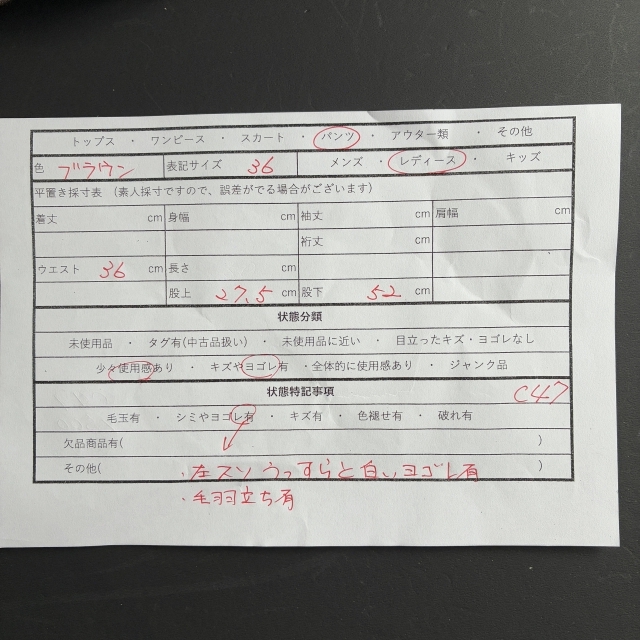 トップス ・ ワンピース ・ スカート ・ パンツ ・ アウター類 ・ その他
色 ブラウン 表記サイズ 36 メンズ ・ レディース ・ キッズ
平置き採寸表 (素人採寸ですので、誤差がでる場合がございます)
着丈 cm 身幅 cm 袖丈 cm 肩幅 cm
裄丈 cm
ウエスト 36 cm 長さ cm
股上 27.5 cm 股下 52 cm
状態分類
未使用品 ・ タグ有(中古品扱い) ・ 未使用品に近い ・ 目立ったキズ・ヨゴレなし
少々使用感あり ・ キズやヨゴレ有 ・全体的に使用感あり ・ ジャンク品
状態特記事項 C47
毛玉有 ・ シミやヨゴレ有 ・ キズ有 ・ 色褪せ有 ・ 破れ有
欠品商品有( )
その他( ・左スソ うっすらと白いヨゴレ有 )
・毛羽立ち有